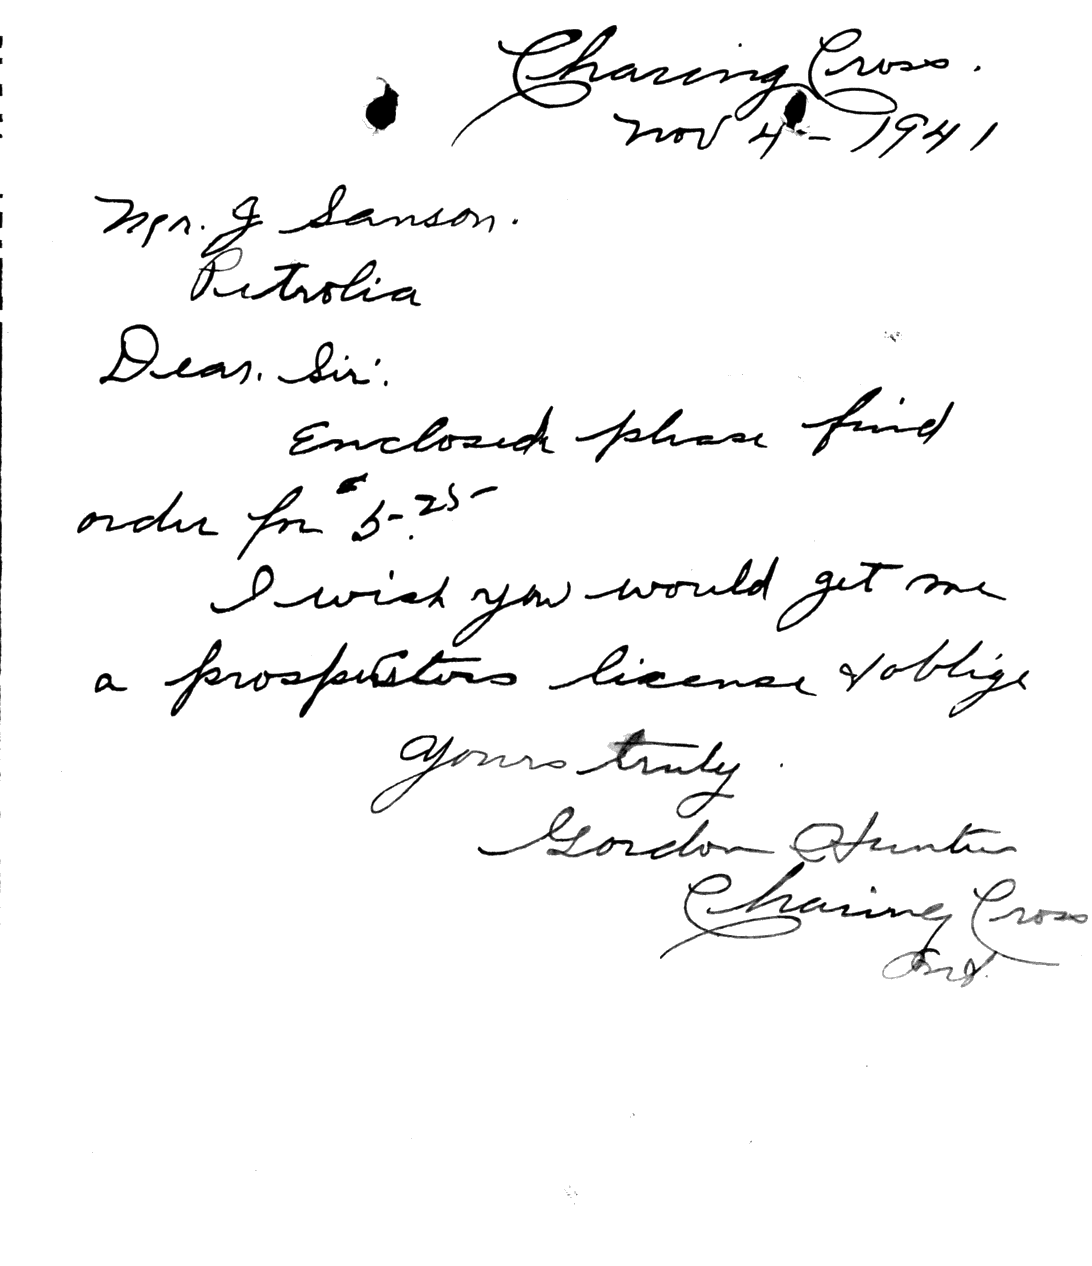 Charing Cross.
Nov 4 - 1941
Mr. J Sanson.
Petrolia
Dear. Sir:
Enclosed please find
order for $5.25
I wish you would get me
a prospectors license & oblige
Yours truly
Gordon Hunter
Charing Cross
Ont.